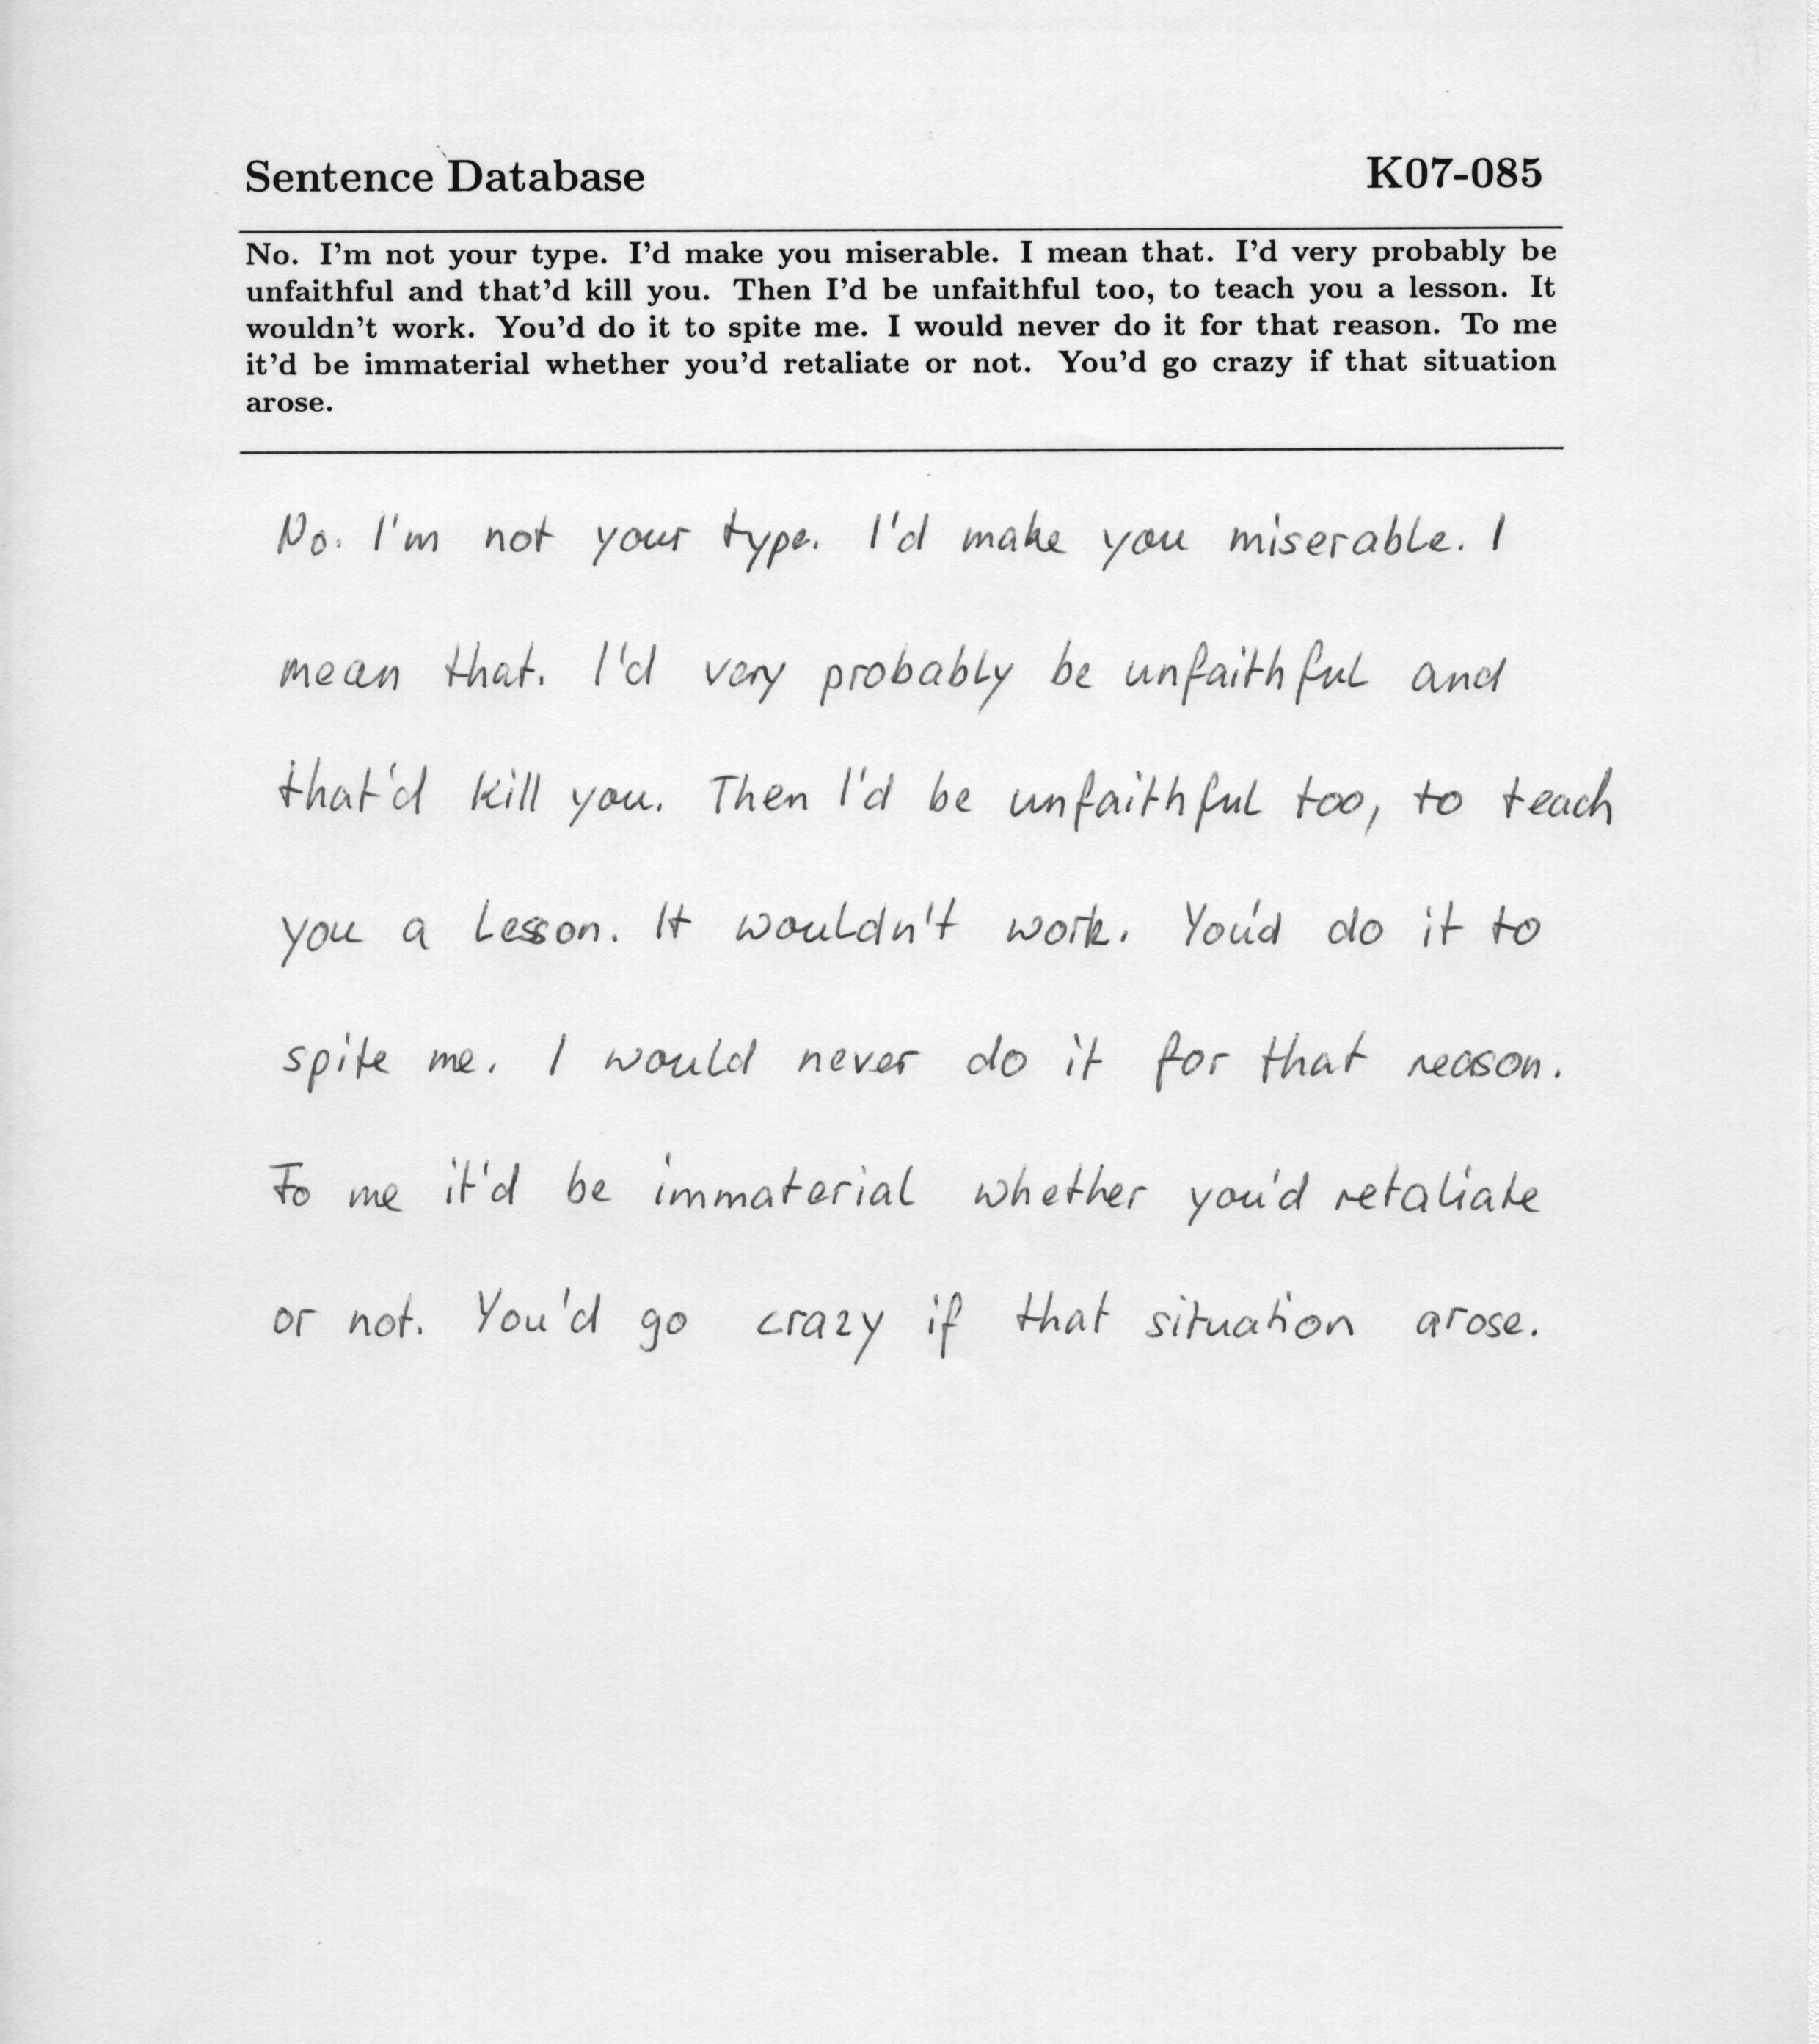 Sentence Database K07-085
No. I'm not your type. I'd make you miserable. I mean that. I'd very probably be
unfaithful and that'd kill you. Then I'd be unfaithful too, to teach you a lesson. It
wouldn't work. You'd do it to spite me. I would never do it for that reason. To me
it'd be immaterial whether you'd retaliate or not. You'd go crazy if that situation
arose.
No. I'm not your type. I'd make you miserable. I
mean that. I'd very probably be unfaithful and
that'd kill you. Then I'd be unfaithful too, to teach
you a lesson. It wouldn't work. You'd do it to
spite me. I would never do it for that reason.
To me it'd be immaterial whether you'd retaliate
or not. You'd go crazy if that situation arose.